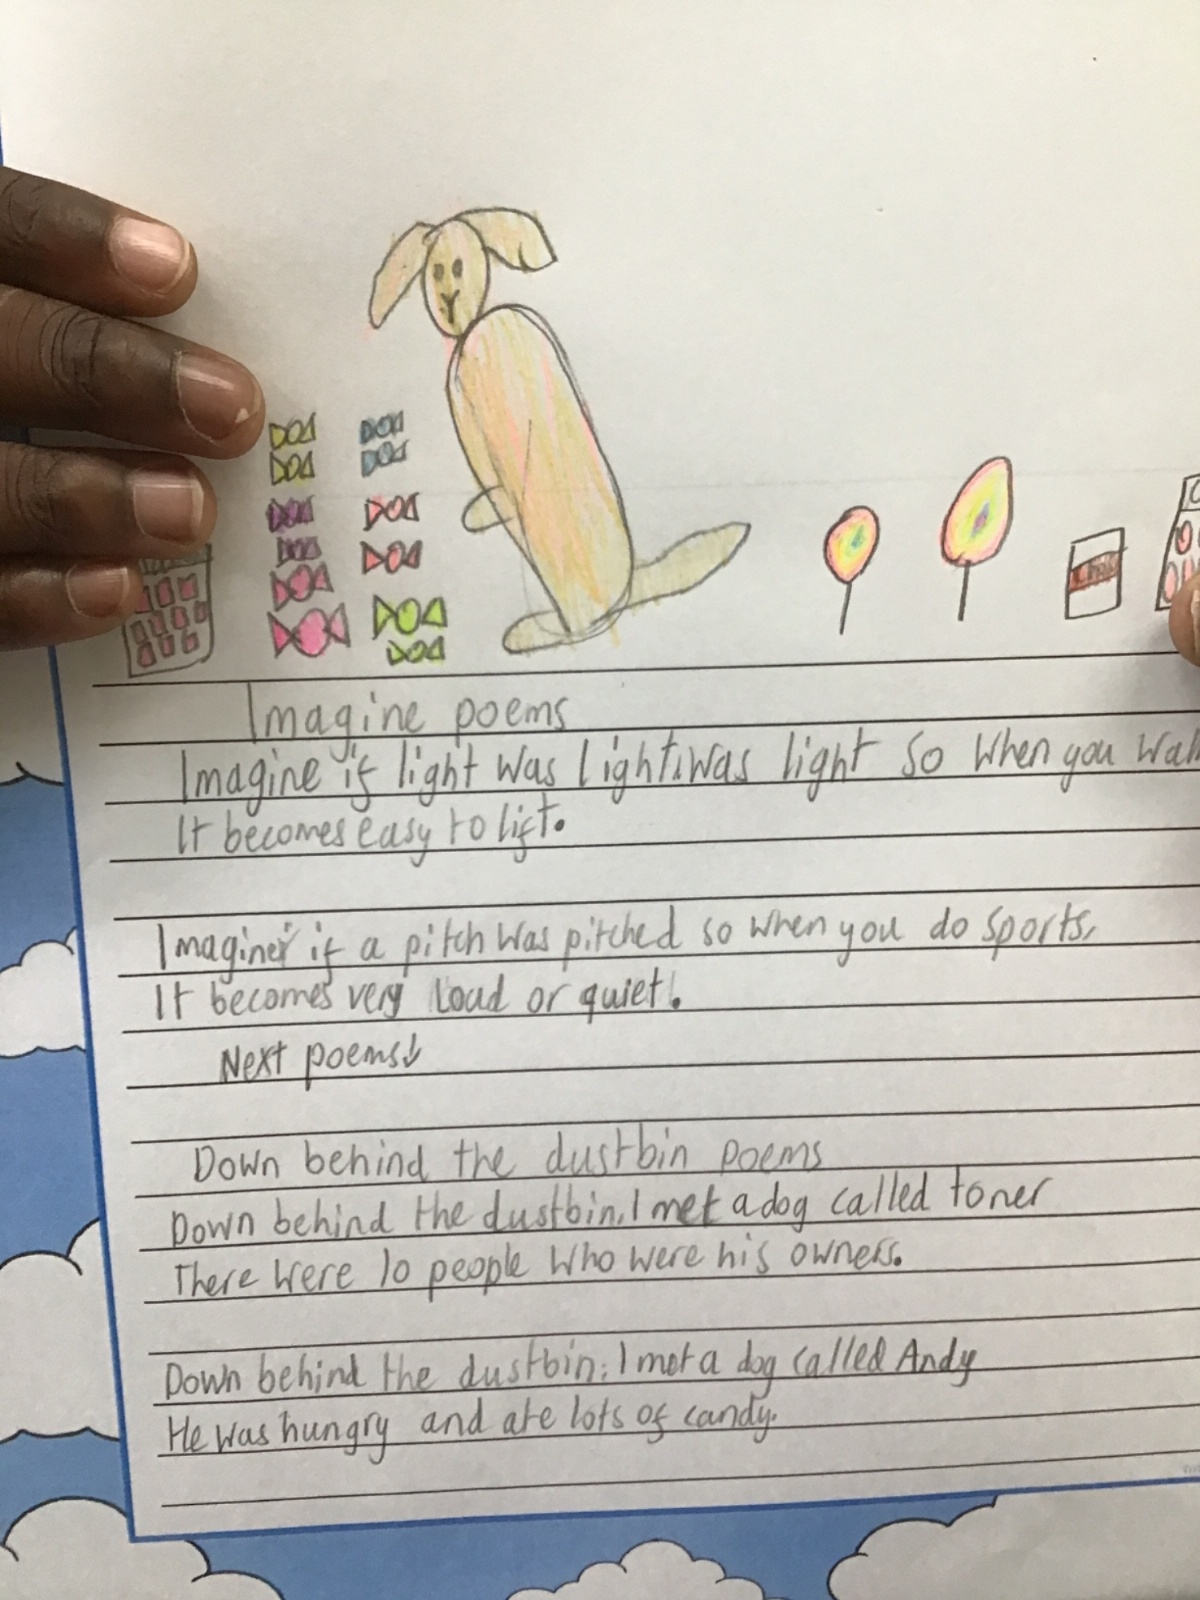 Choc
Imagine poems
Imagine if light was light.was light so when you
It becomes easy to lift.
Imagine if a pitch was pitched so when you do sports,
It becomes very loud or quiet.
Next poems↓
Down behind the dustbin poems
Down behind the dustbin, I met a dog called toner
There were 10 people who were his owners.
Down behind the dustbin, I met a dog called Andy
He was hungry and ate lots of candy.